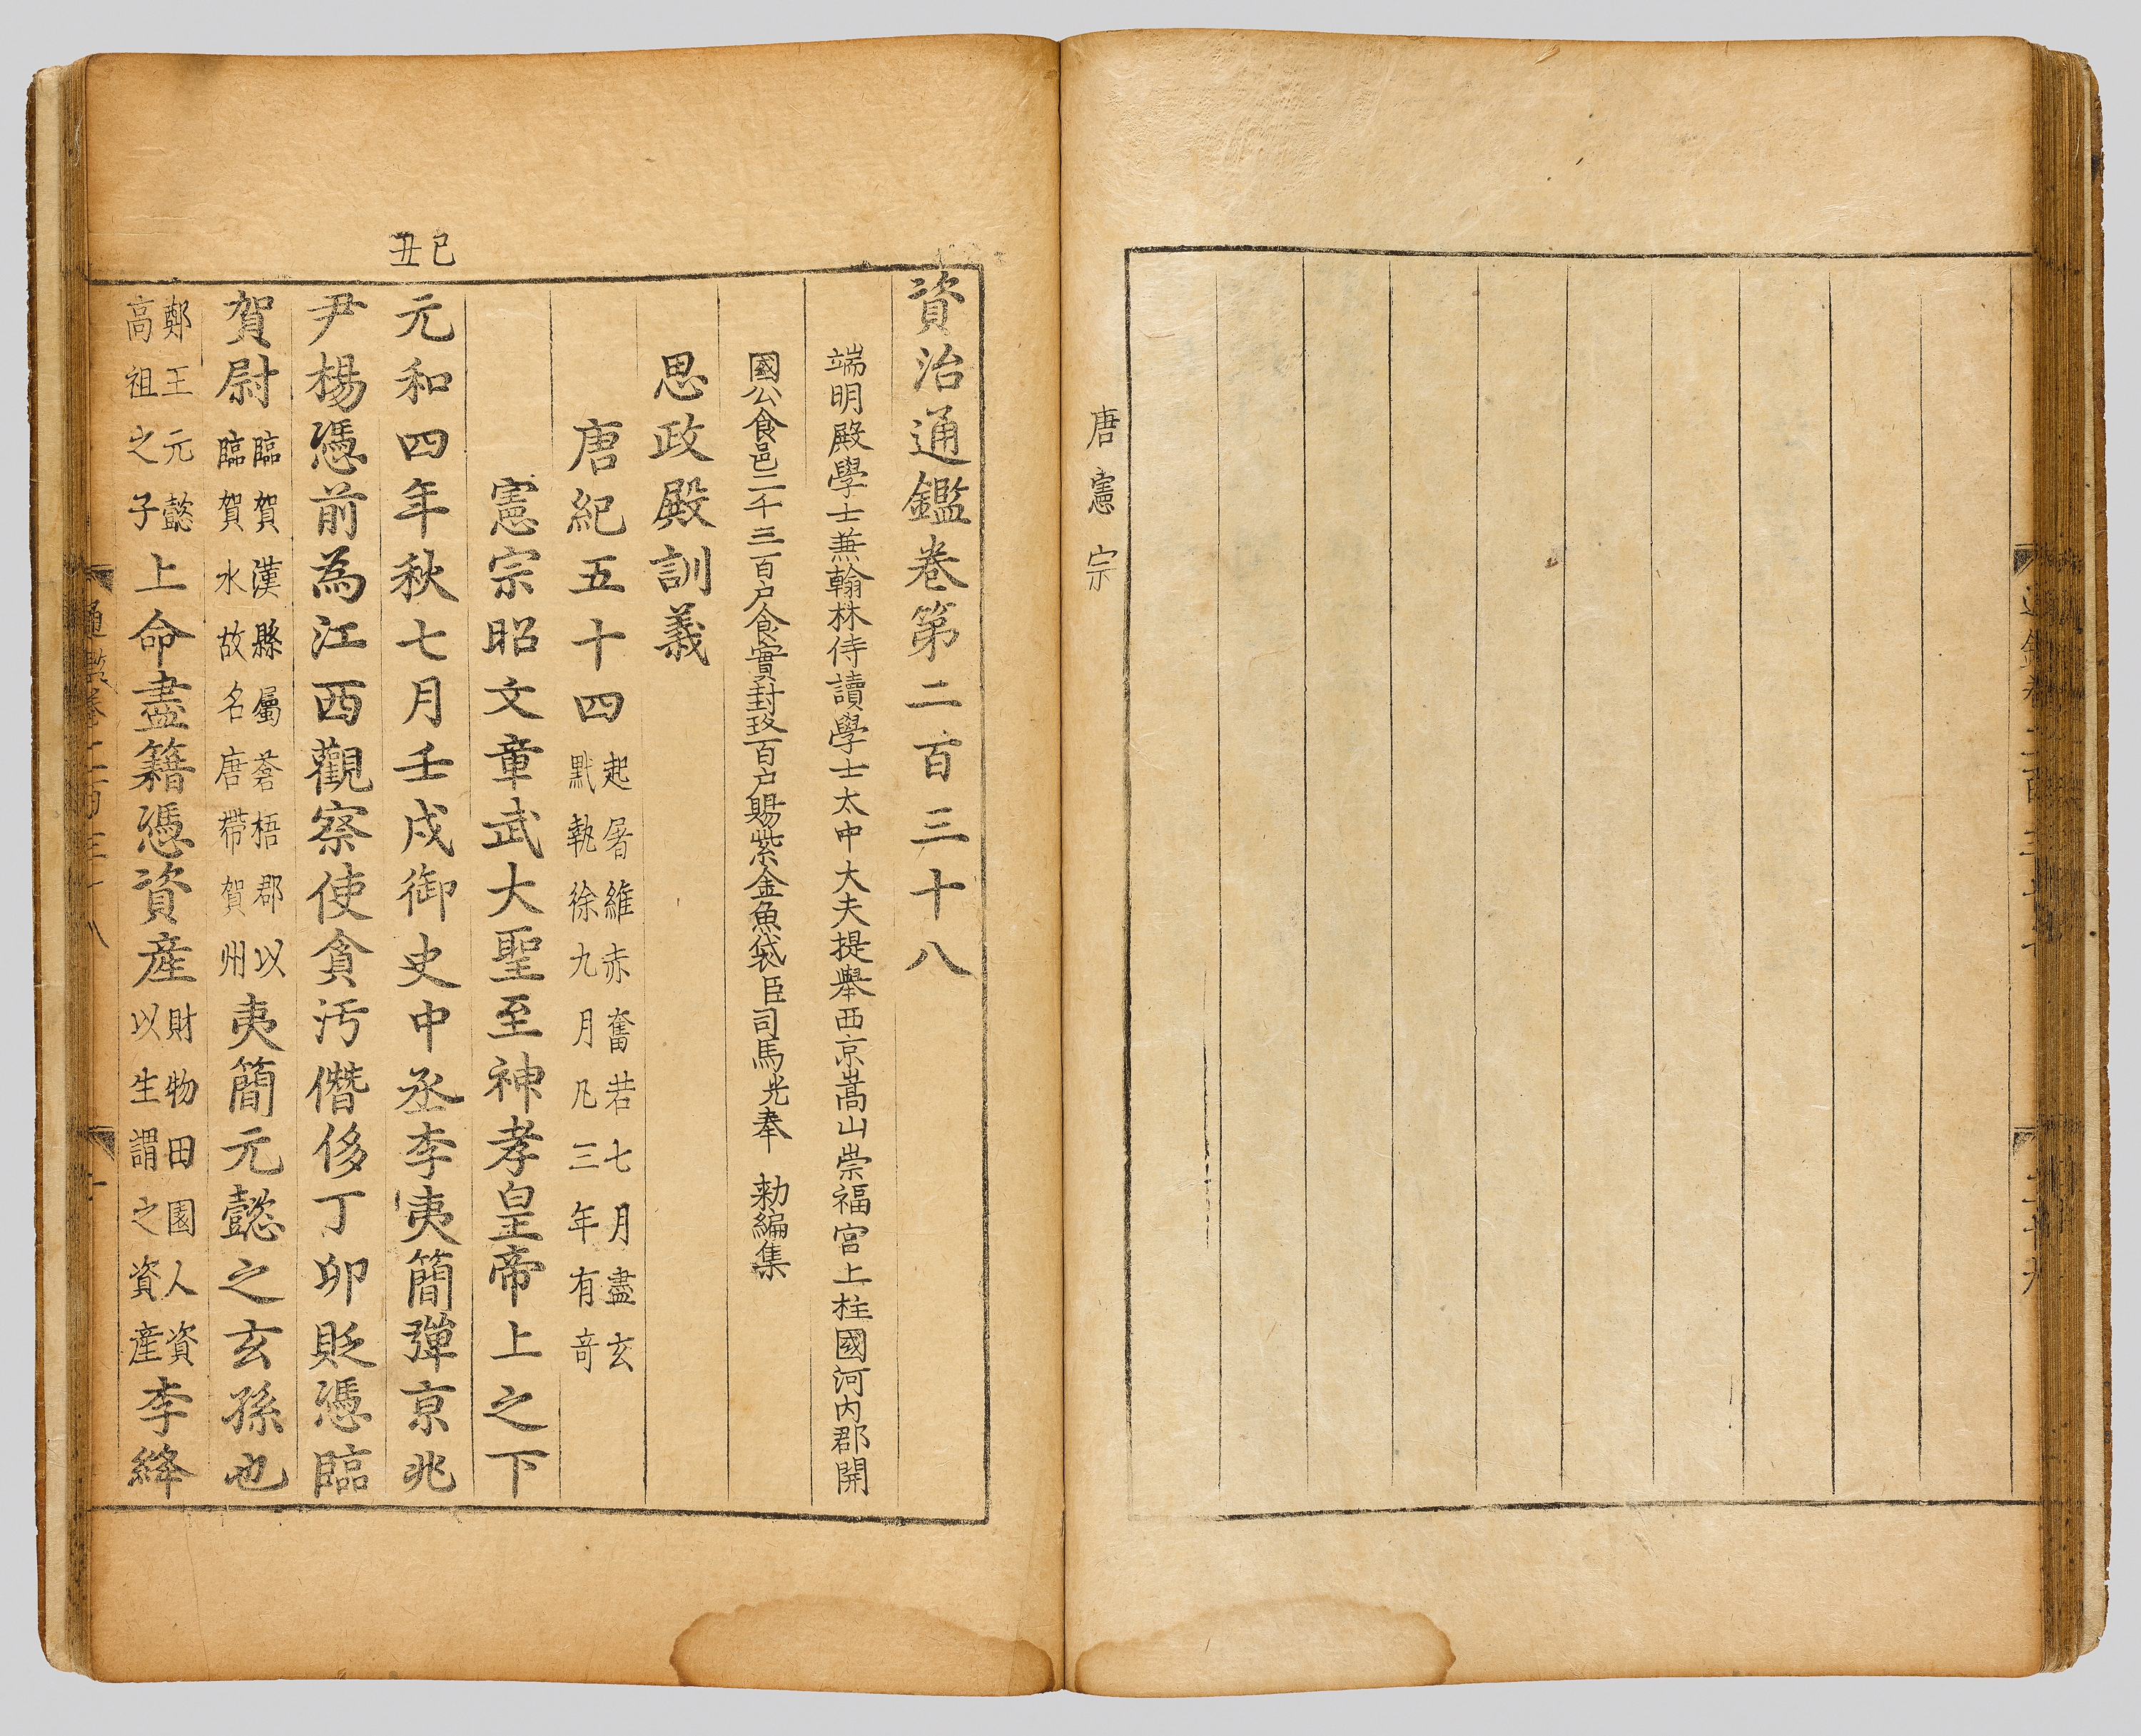 唐憲宗
資治通鑑卷第二百三十八
端明殿學士兼翰林侍讀學士太中大夫提舉西京嵩山崇福宮上柱國河內郡開
國公食邑二千三百户食實封玖百户賜紫金魚袋臣司馬光奉 勑編集
思政殿訓義
唐紀五十四 起屠維赤奮若七月盡玄
黓執徐九月凡三年有奇
憲宗昭文章武大聖至神孝皇帝上之下
己丑
元和四年秋七月壬戌御史中丞李夷簡彈京兆
尹楊憑前為江西觀察使貪汚僭侈丁卯貶憑臨
賀尉 臨賀漢縣屬蒼梧郡以
臨賀水故名唐帶賀州 夷簡元懿之玄孫也
鄭王元懿
高祖之子 上命盡籍憑資産 財物田園人資
以生謂之資産 李絳
通鑑卷二百三十八